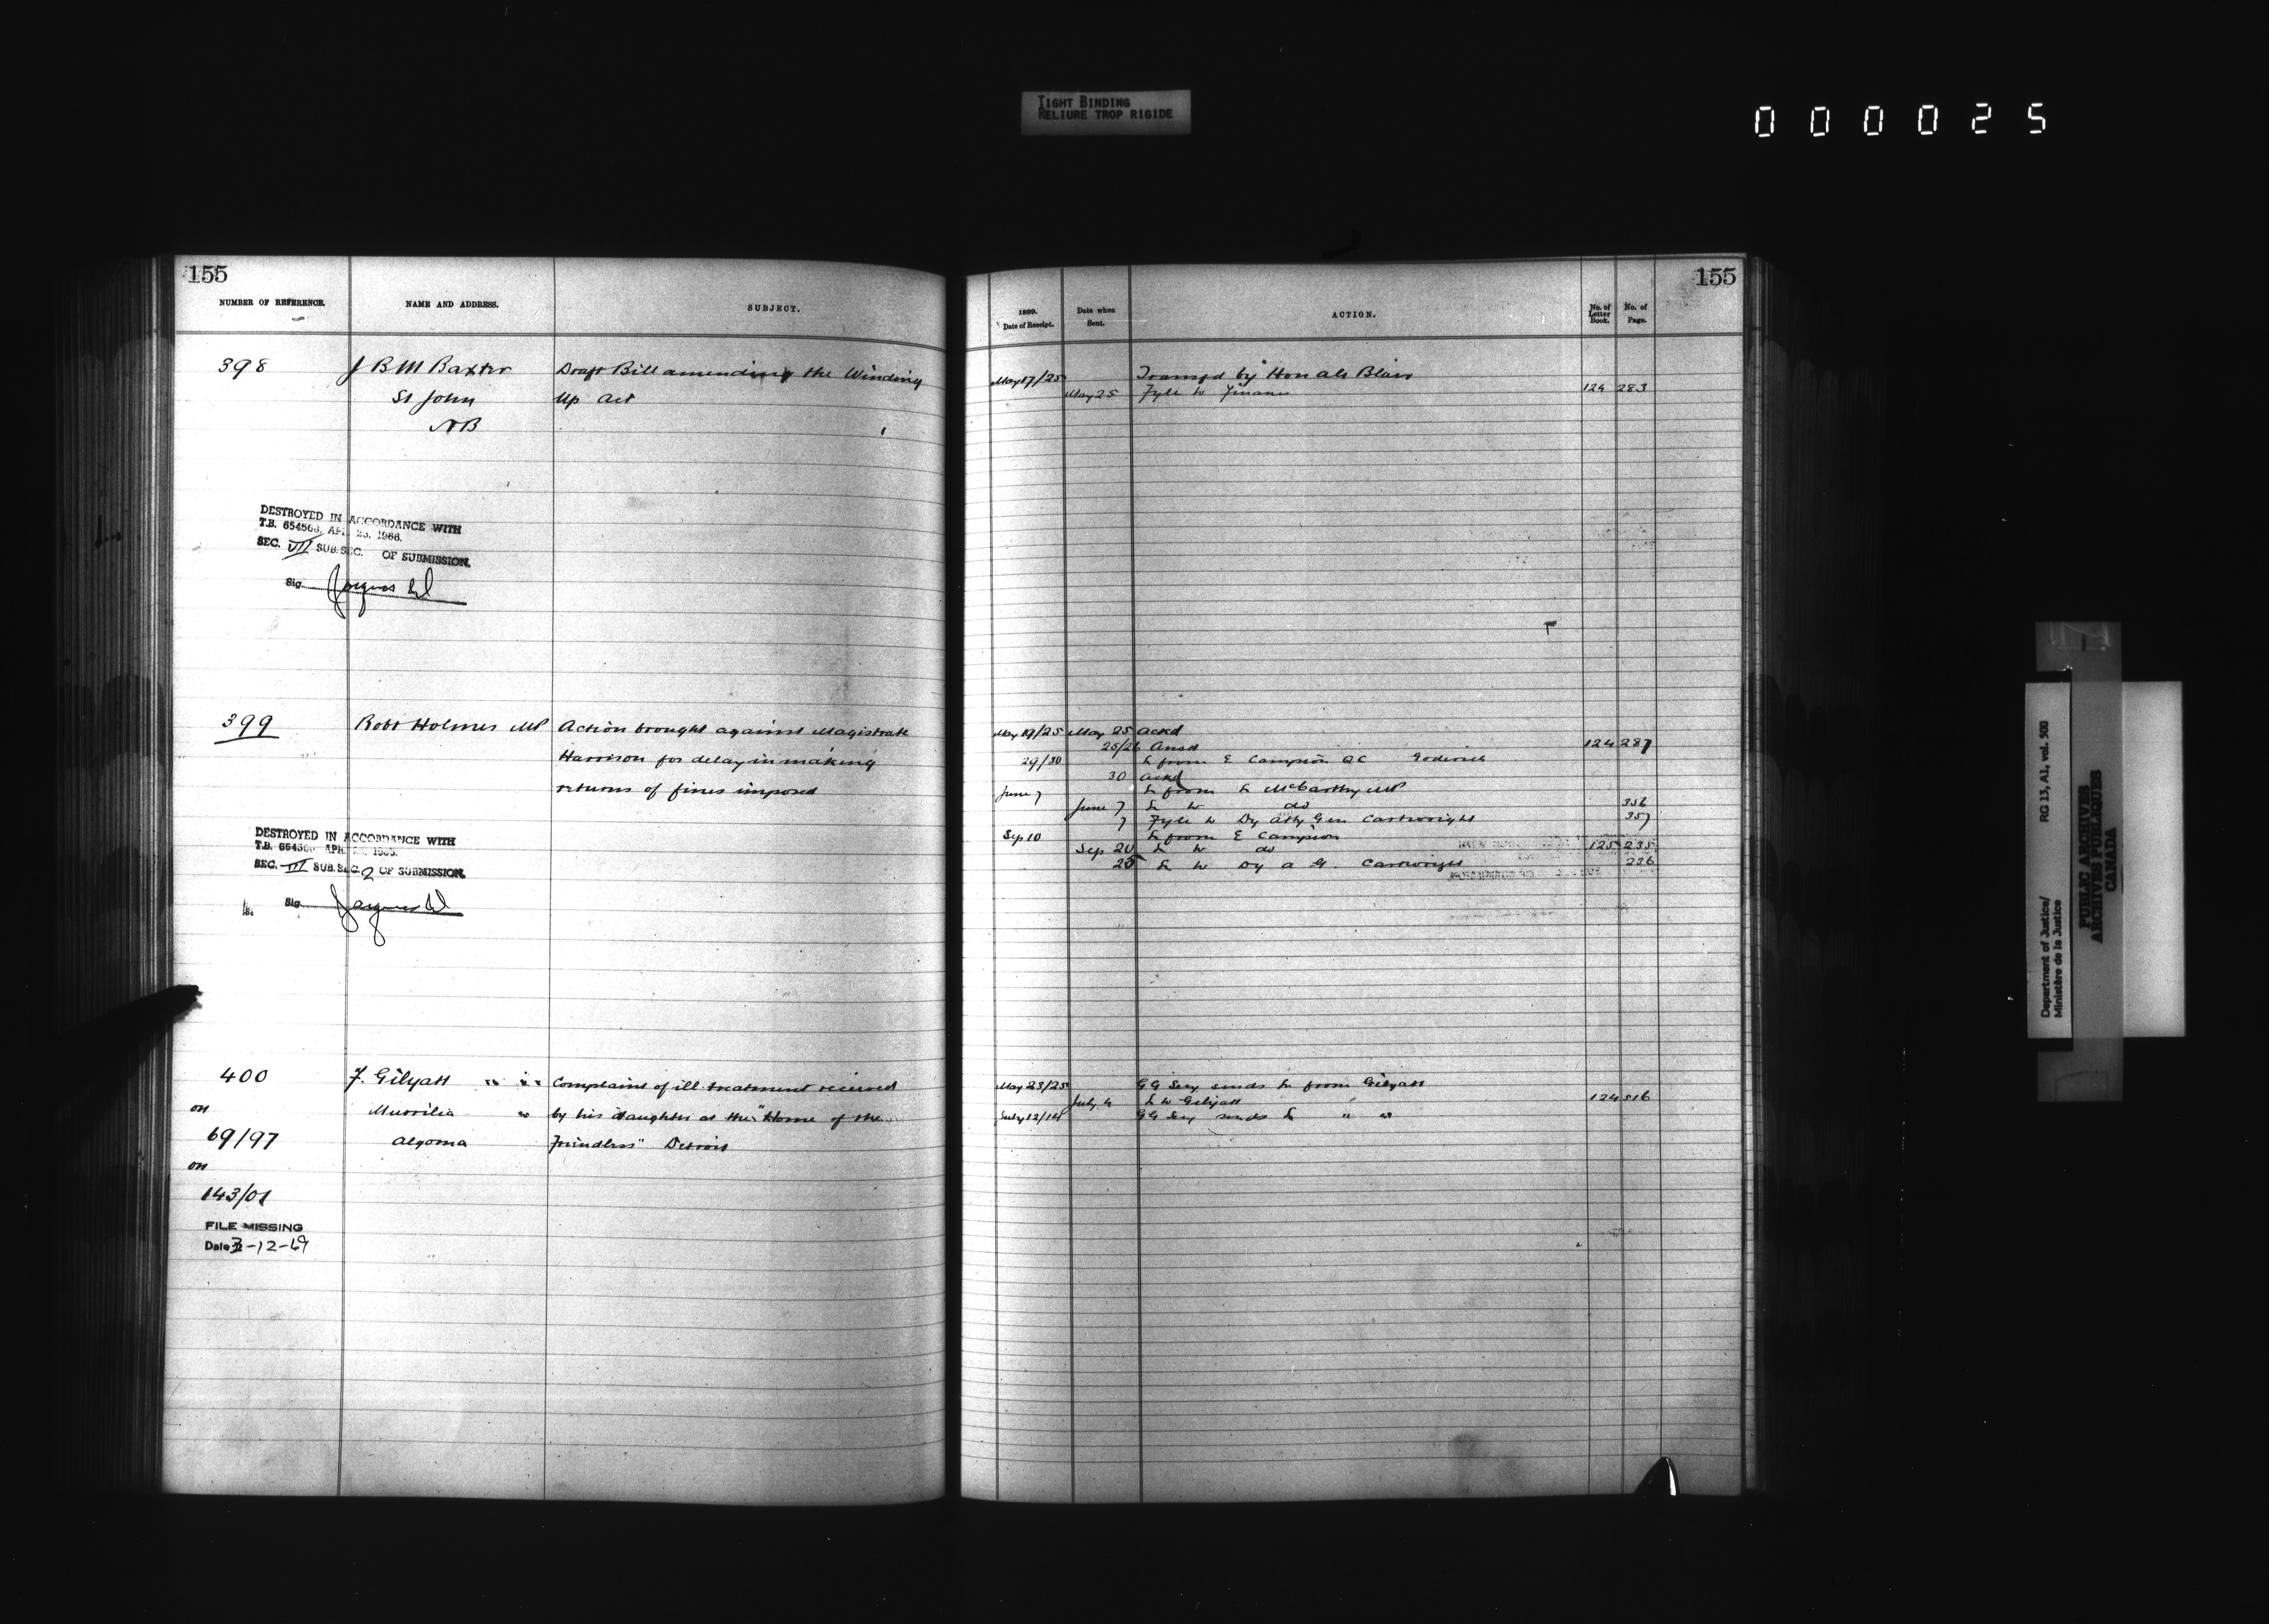 TIGHT BINDING
RELIURE TROP RIGIDE
000025
155
NUMBER OF REFERENCE. NAME AND ADDRESS. SUBJECT.
398 J B M Baxter Draft Bill amending the Winding
St John Up Act
NB
DESTROYED IN ACCORDANCE WITH
T.B. 654563, APR. 25, 1966.
SEC. VII SUB.SEC. OF SUBMISSION.
Sig.
399 Robt Holmes MP Action brought against Magistrate
Harrison for delay in making
returns of fines imposed
DESTROYED IN ACCORDANCE WITH
T.B. APR.
SEC. III SUB.SEC. 2 OF SUBMISSION.
Sig.
400 F. Gilyatt " " " Complaint of ill treatment received
on " by his daughter at the "Home of the
69/97 Algoma Friendless" Detroit
on
143/01
FILE MISSING
Date 3-12-69
155
1899. Date of Receipt. Date when Sent. ACTION. No. of Letter Book. No. of Page.
May 17/25 Transfd by Hon Blair
May 25 Fyle to Finance 124 283
May 19/25 May 25 ackd
25/26 Ansd 124 287
29/30 L from E Campion QC Goderich
30 ackd
June 7 L from L McCarthy MP
June 7 L to do 356
7 Fyle to Dy Atty Gen Cartwright 357
Sep 10 L from E Campion
Sep 20 L to do 125 235
20 L to Dy A G. Cartwright 236
May 23/25 GG Secy sends L from Gilyatt
July 4 L to Gilyatt 124 516
July 12/14 GG Secy sends L " "
Department of Justice/
Ministère de la Justice
RG 13, A1, vol. 500
PUBLIC ARCHIVES
ARCHIVES PUBLIQUES
CANADA